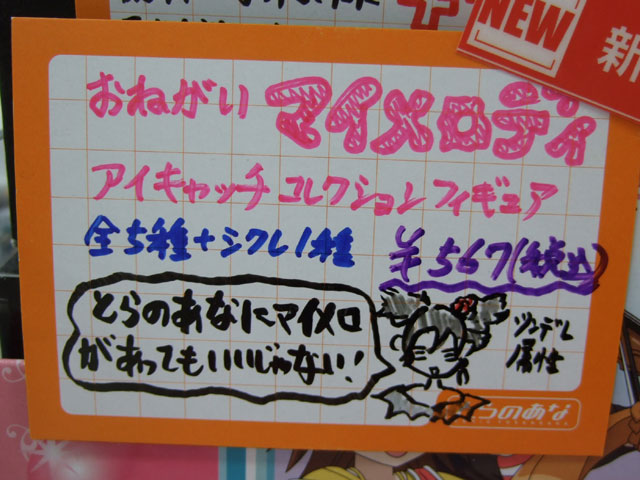 NEW
新
おねがい マイメロディ
アイキャッチコレクションフィギュア
全5種+シクレ1種
¥567(税込)
とらのあなにマイメロ
があってもいいじゃない!
ツンデレ
属性
とらのあな